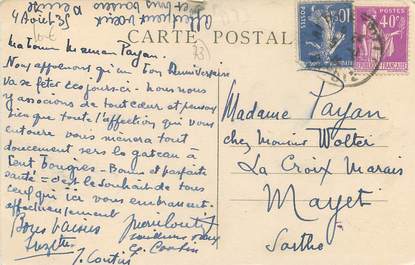 4 Août 35
CARTE POSTALE
10c
40c
POSTES
FRANÇAISE
ma bonne Maman Payan.
Nous apprenons qu'un bon Anniversaire
va se fêter ces jours-ci. Nous nous
y associons de tout cœur et pensons
bien que toute l'affection qui vous
entoure vous mènera tout
doucement vers le gateau à
Cent bougies - Bonne et parfaite
santé - c'est le souhait de tous
ceux qui ici vous embrassent
affectueusement
Bons baisers
Suzette
J. Coutin
Madame Payan
chez Monsieur Wolter
La Croix Marais
Mayet
Sarthe